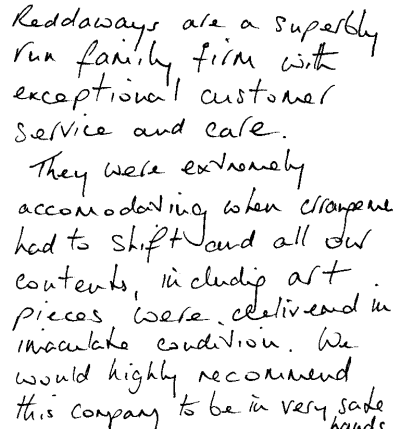 Reddaways are a superbly
run family firm with
exceptional customer
service and care.
They were extremely
accomodating when arrangeme
had to shift and all our
contents, including art
pieces were delivered in
imaculate condition. We
would highly recommend
this company to be in very safe
hands